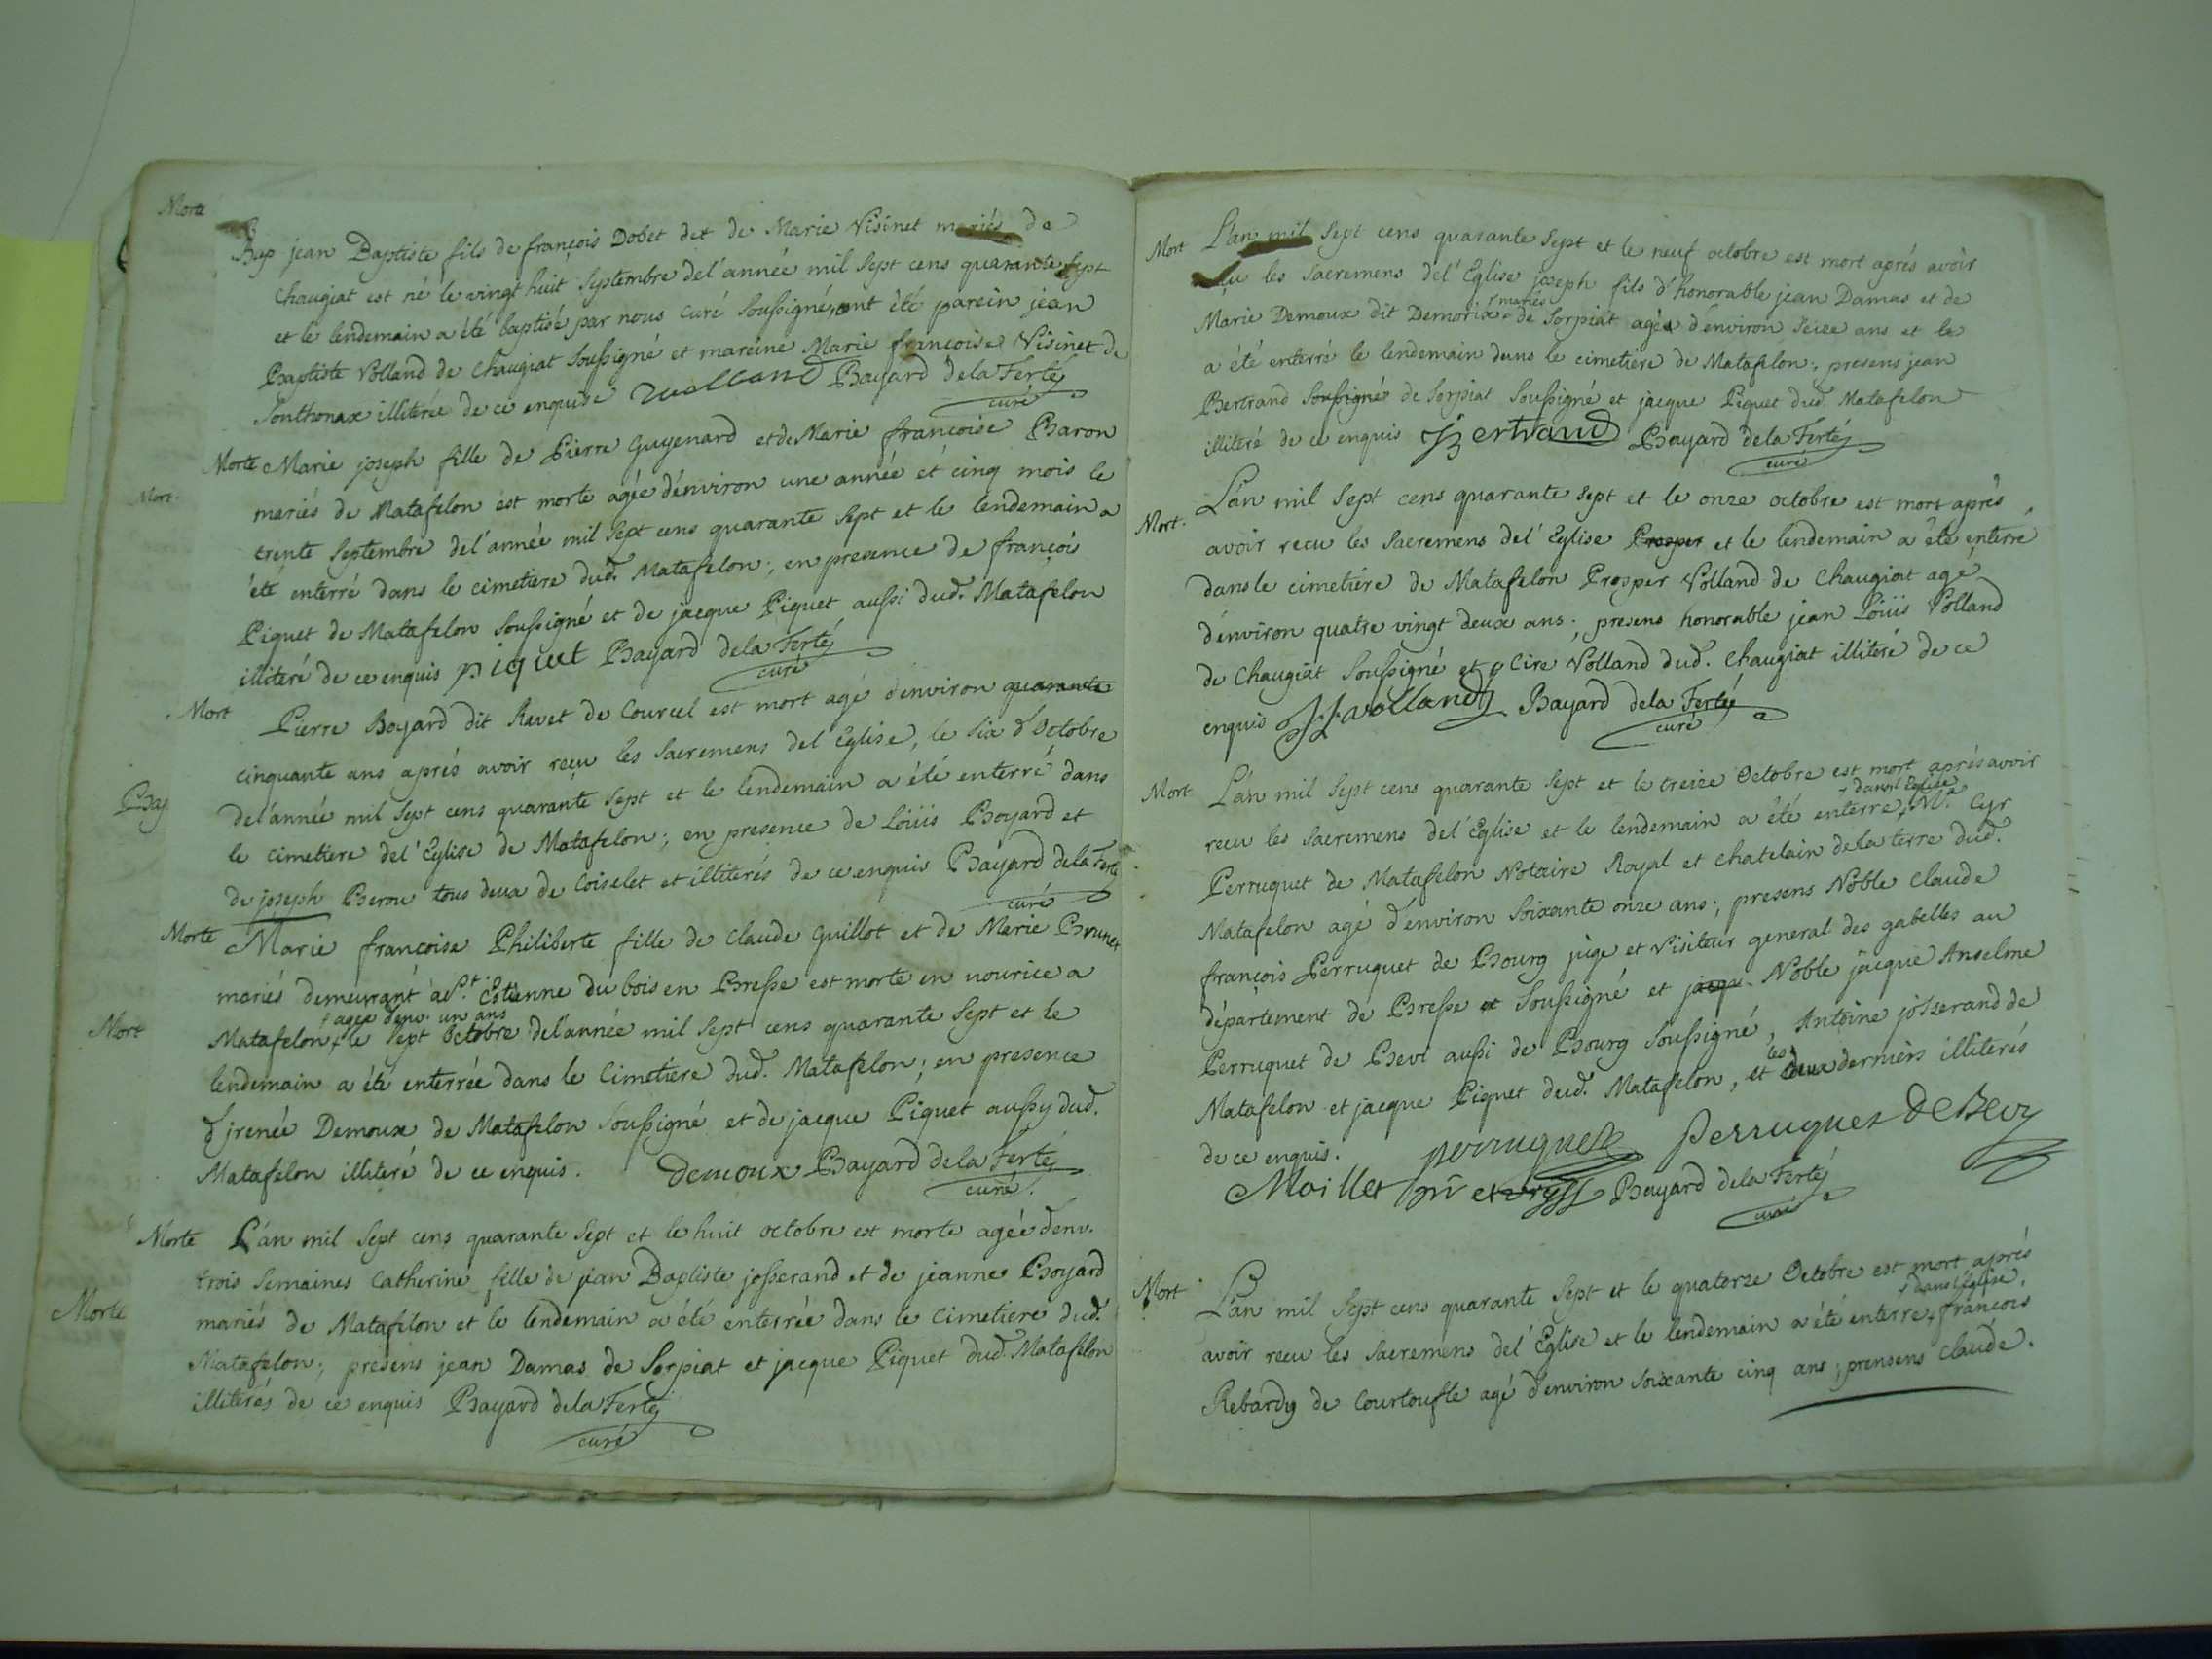 Morte
Bap jean Baptiste fils de françois Dobet det de Marie Visinet mariés de
Chaugiat est né le vingt huit Septembre del'année mil Sept cens quarante Sept
et le lendemain a été baptisé par nous curé Soussigné, ont été parein jean
Baptiste Volland de Chaugiat Soussigné et mareine Marie françoise Visinet de
Sonthonax illiterée de ce enquise Vuolland Bayard dela Ferté
curé
Morte Marie joseph fille de Pierre Guyenard et de Marie françoise Baron
Mort.
mariés de Matafelon est morte agée d'environ une année et cinq mois le
trente Septembre del'année mil Sept cens quarante Sept et le lendemain a
été enterré dans le cimetiere dud. Matafelon; en presence de françois
Piquet de Matafelon Soussigné et de jacque Piquet aussi dud. Matafelon
illiteré de ce enquis piquet Bayard dela Ferté
curé
Mort Pierre Boyard dit Ravet de Courcel est mort agé d'environ quarante
cinquante ans aprés avoir reçu les Sacremens del'Eglise, le Six d'Octobre
Bap
del'année mil Sept cens quarante Sept et le lendemain a été enterré dans
le cimetiere del'Eglise de Matafelon; en presence de Löuis Boyard et
de joseph Berou tous deux de Coiselet et illiterés de ce enquis Bayard dela Ferté
curé
Morte Marie françoise Philiberte fille de Claude Guillot et de Marie Brunet
mariés demeurant a St. Estienne du bois en Bresse est morte en nourice a
+ agée denv. un ans
Mort
Matafelon + le Sept Octobre del'année mil Sept cens quarante Sept et le
lendemain a été enterrée dans le Cimetiere dud. Matafelon; en presence
d'jrenée Demoux de Matafelon Soussigné et de jacque Piquet aussy dud.
Matafelon illiteré de ce enquis. Demoux Bayard dela Ferté
curé.
Morte L'an mil Sept cens quarante Sept et le huit octobre est morte agée d'env.
trois Semaines Catherine fille de jean Baptiste josserand et de jeanne Boyard
Morte
mariés de Matafelon et le lendemain a été enterrée dans le Cimetiere dud.
Matafelon; presens jean Damas de Sorpiat et jacque Piquet dud. Matafelon
illiterés de ce enquis Bayard dela Ferté
curé
Mort L'an mil Sept cens quarante Sept et le neuf octobre est mort aprés avoir
les Sacremens del'Eglise joseph fils d'honorable jean Damas et de
+ mariés
Marie Demoux dit Demorix + de Sorpiat agé d'environ Seize ans et le
a été enterré le lendemain dans le cimetiere de Matafelon; presens jean
Bertrand Soussigné de Sorpiat Soussigné et jacque Piquet dud. Matafelon
illiteré de ce enquis JBertrand Bayard dela Ferté
curé
Mort. L'an mil Sept cens quarante Sept et le onze octobre est mort aprés
avoir recu les Sacremens del'Eglise Prosper et le lendemain a été enterré
dans le cimetiére de Matafelon Prosper Volland de Chaugiat agé
d'environ quatre vingt deux ans; presens honorable jean Löuis Volland
de Chaugiat Soussigné et Cire Volland dud. Chaugiat illiteré de ce
enquis JLavolland Bayard dela Ferté
curé
Mort L'an mil Sept cens quarante Sept et le treize Octobre est mort aprés avoir
+ dans l'Eglise
recu les Sacremens del'Eglise et le lendemain a été enterré + Me. Cyr
Perruquet de Matafelon Notaire Royal et chatelain dela terre dud.
Matafelon agé d'environ Soixante onze ans; presens Noble Claude
françois Perruquet de Bourg juge et Visiteur general des gabelles au
département de Bresse et Soussigné et jacqu. Noble jacque Anselme
Perruquet de Bevi aussi de Bourg Soussigné, Antoine josserand de
les
Matafelon et jacque Piquet dud. Matafelon, et deux derniers illiterés
de ce enquis. perruquet Perruquet De Bevy
Maillet Bayard dela Ferté
curé
Mort L'an mil Sept cens quarante Sept et le quatorze Octobre est mort aprés
+ dans l'Eglise.
avoir recu les Sacremens del'Eglise et le lendemain a été enterré + françois
Rebardy de Courtoufle agé d'environ Soixante cinq ans; prensens Claude.